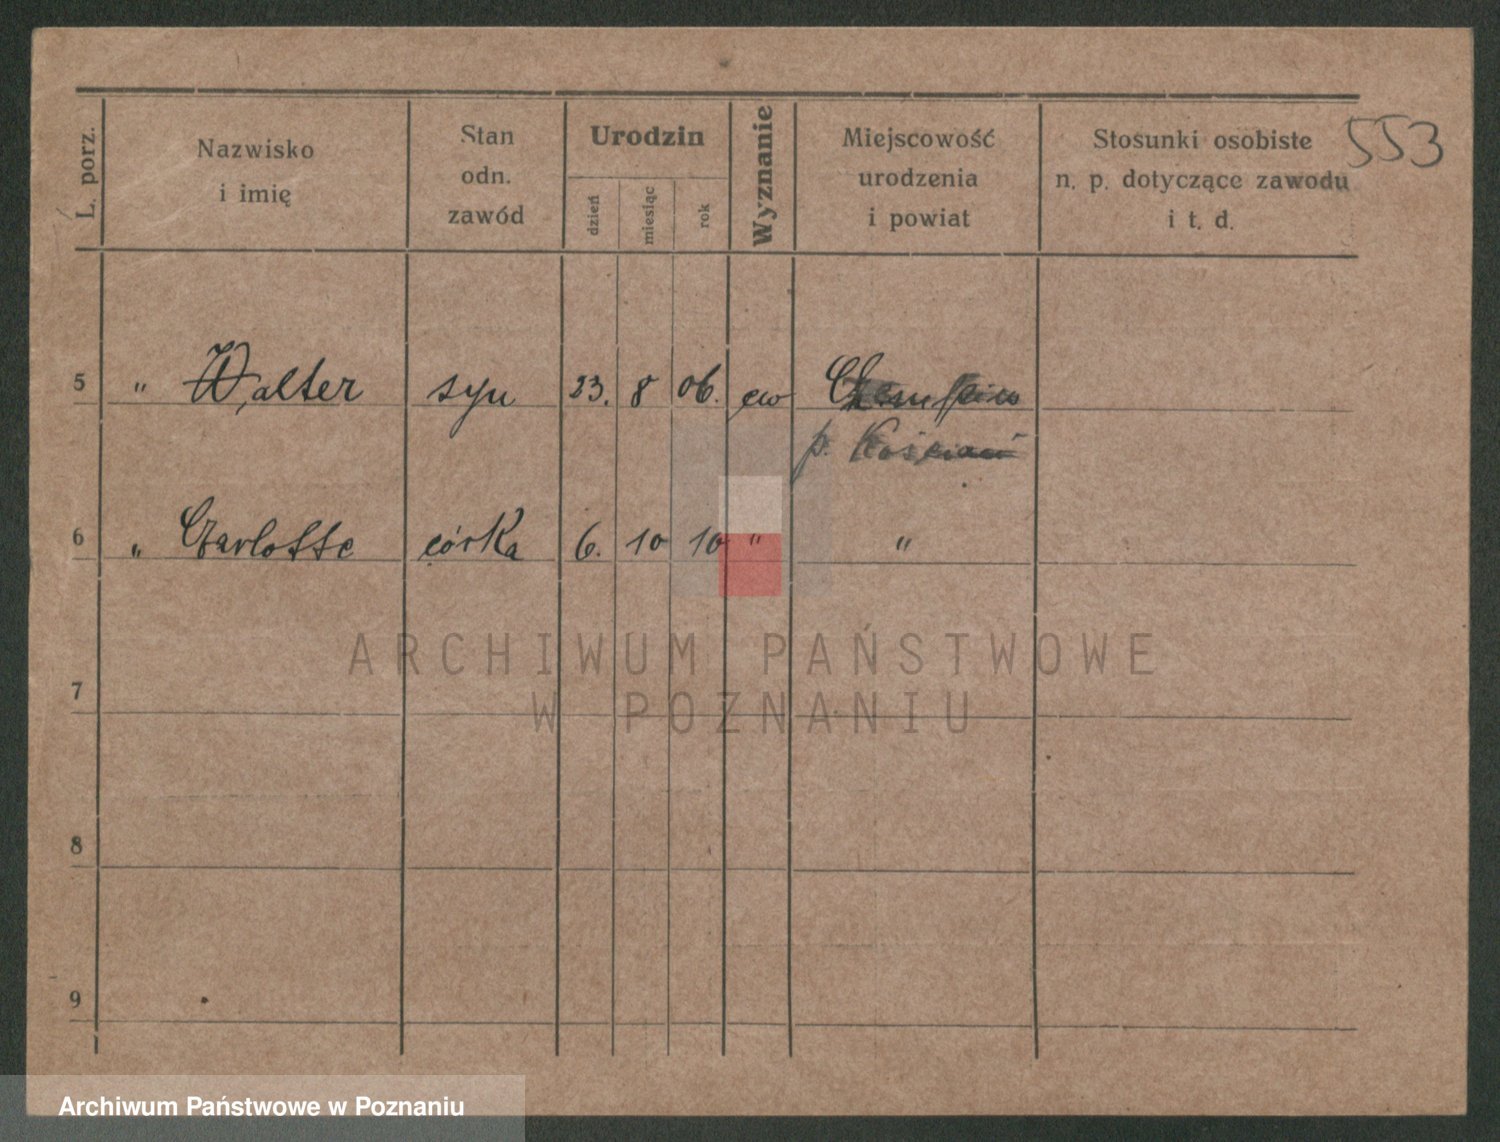 L. porz.
Nazwisko
i imię
Stan
odn.
zawód
Urodzin
dzień
miesiąc
rok
Wyznanie
Miejscowość
urodzenia
i powiat
Stosunki osobiste
n. p. dotyczące zawodu
i t. d.
553
5 " Walter syn 23. 8 06. ew Czempin
p. Kościan
6 " Czarlotte córka 6. 10 10 " "
7
8
9
ARCHIWUM PAŃSTWOWE
W POZNANIU
Archiwum Państwowe w Poznaniu